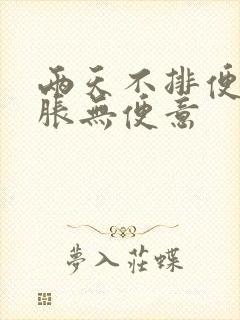 兩天不排便
脹無便意
夢入莊蝶